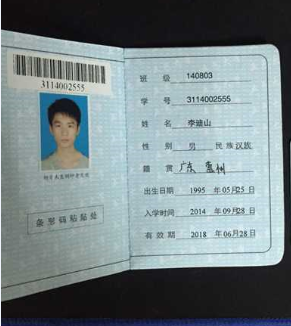 3114002555
条形码粘贴处
班 级 140803
学 号 3114002555
姓 名 李迪山
性 别 男 民 族 汉族
籍 贯 广东
出生日期 1995 年 05月25 日
入学时间 2014 年 09月28 日
有 效 期 2018 年 06月28 日